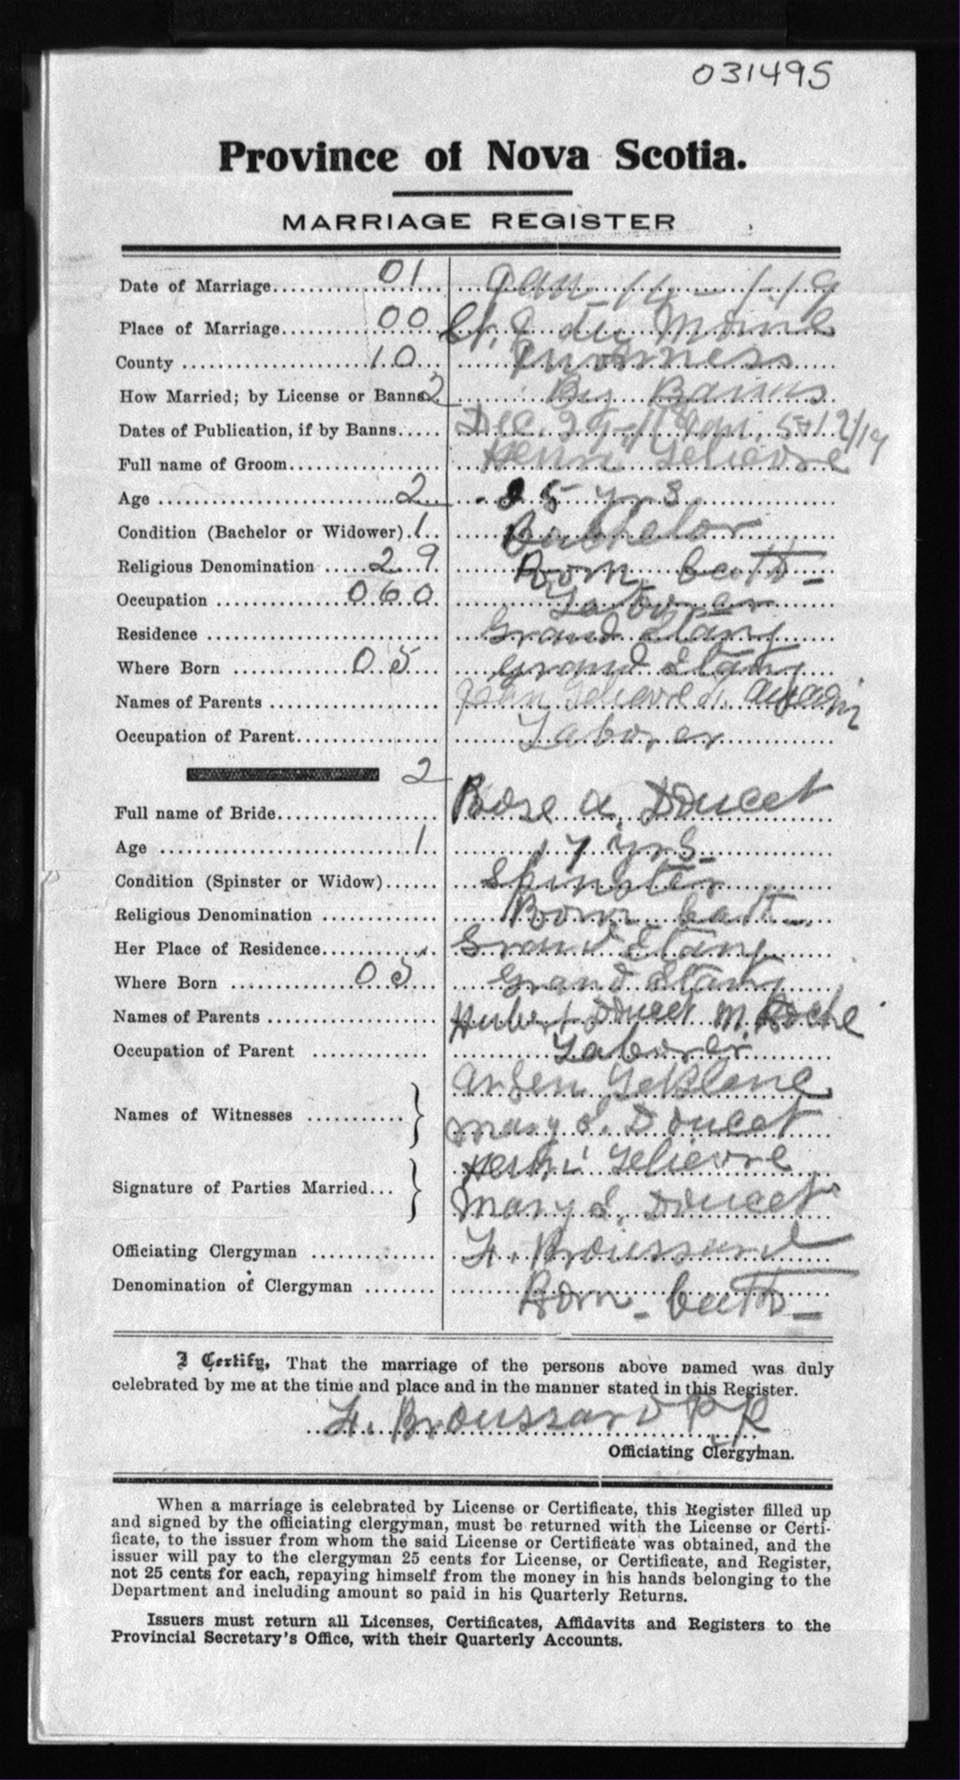 031495
Province of Nova Scotia.
MARRIAGE REGISTER
Date of Marriage 01 Jan 1919
Place of Marriage 00 St. J. du Moine
County 10 Inverness
How Married; by License or Banns 2 By Banns
Dates of Publication, if by Banns Dec. 29 Jan 5 12/19
Full name of Groom Henri Lelievre
Age 2 25 yrs
Condition (Bachelor or Widower) 1 Bachelor
Religious Denomination 29 Rom. Cath
Occupation 060 Laborer
Residence Grand Etang
Where Born 05 Grand Etang
Names of Parents Jean Lelievre
Occupation of Parent Laborer
2
Full name of Bride Rose A. Doucet
Age 1 17 yrs
Condition (Spinster or Widow) Spinster
Religious Denomination Rom. Cath
Her Place of Residence Grand Etang
Where Born 05 Grand Etang
Names of Parents Hubert Doucet M. Roche
Occupation of Parent Laborer
Arsen LeBlanc
Names of Witnesses
Mary S. Doucet
Henri Lelievre
Signature of Parties Married
Mary S. Doucet
Officiating Clergyman H. Broussard
Denomination of Clergyman Rom. Cath
I Certify, That the marriage of the persons above named was duly
celebrated by me at the time and place and in the manner stated in this Register.
H. Broussard P.P.
Officiating Clergyman.
When a marriage is celebrated by License or Certificate, this Register filled up
and signed by the officiating clergyman, must be returned with the License or Certi-
ficate, to the issuer from whom the said License or Certificate was obtained, and the
issuer will pay to the clergyman 25 cents for License, or Certificate, and Register,
not 25 cents for each, repaying himself from the money in his hands belonging to the
Department and including amount so paid in his Quarterly Returns.
Issuers must return all Licenses, Certificates, Affidavits and Registers to the
Provincial Secretary's Office, with their Quarterly Accounts.